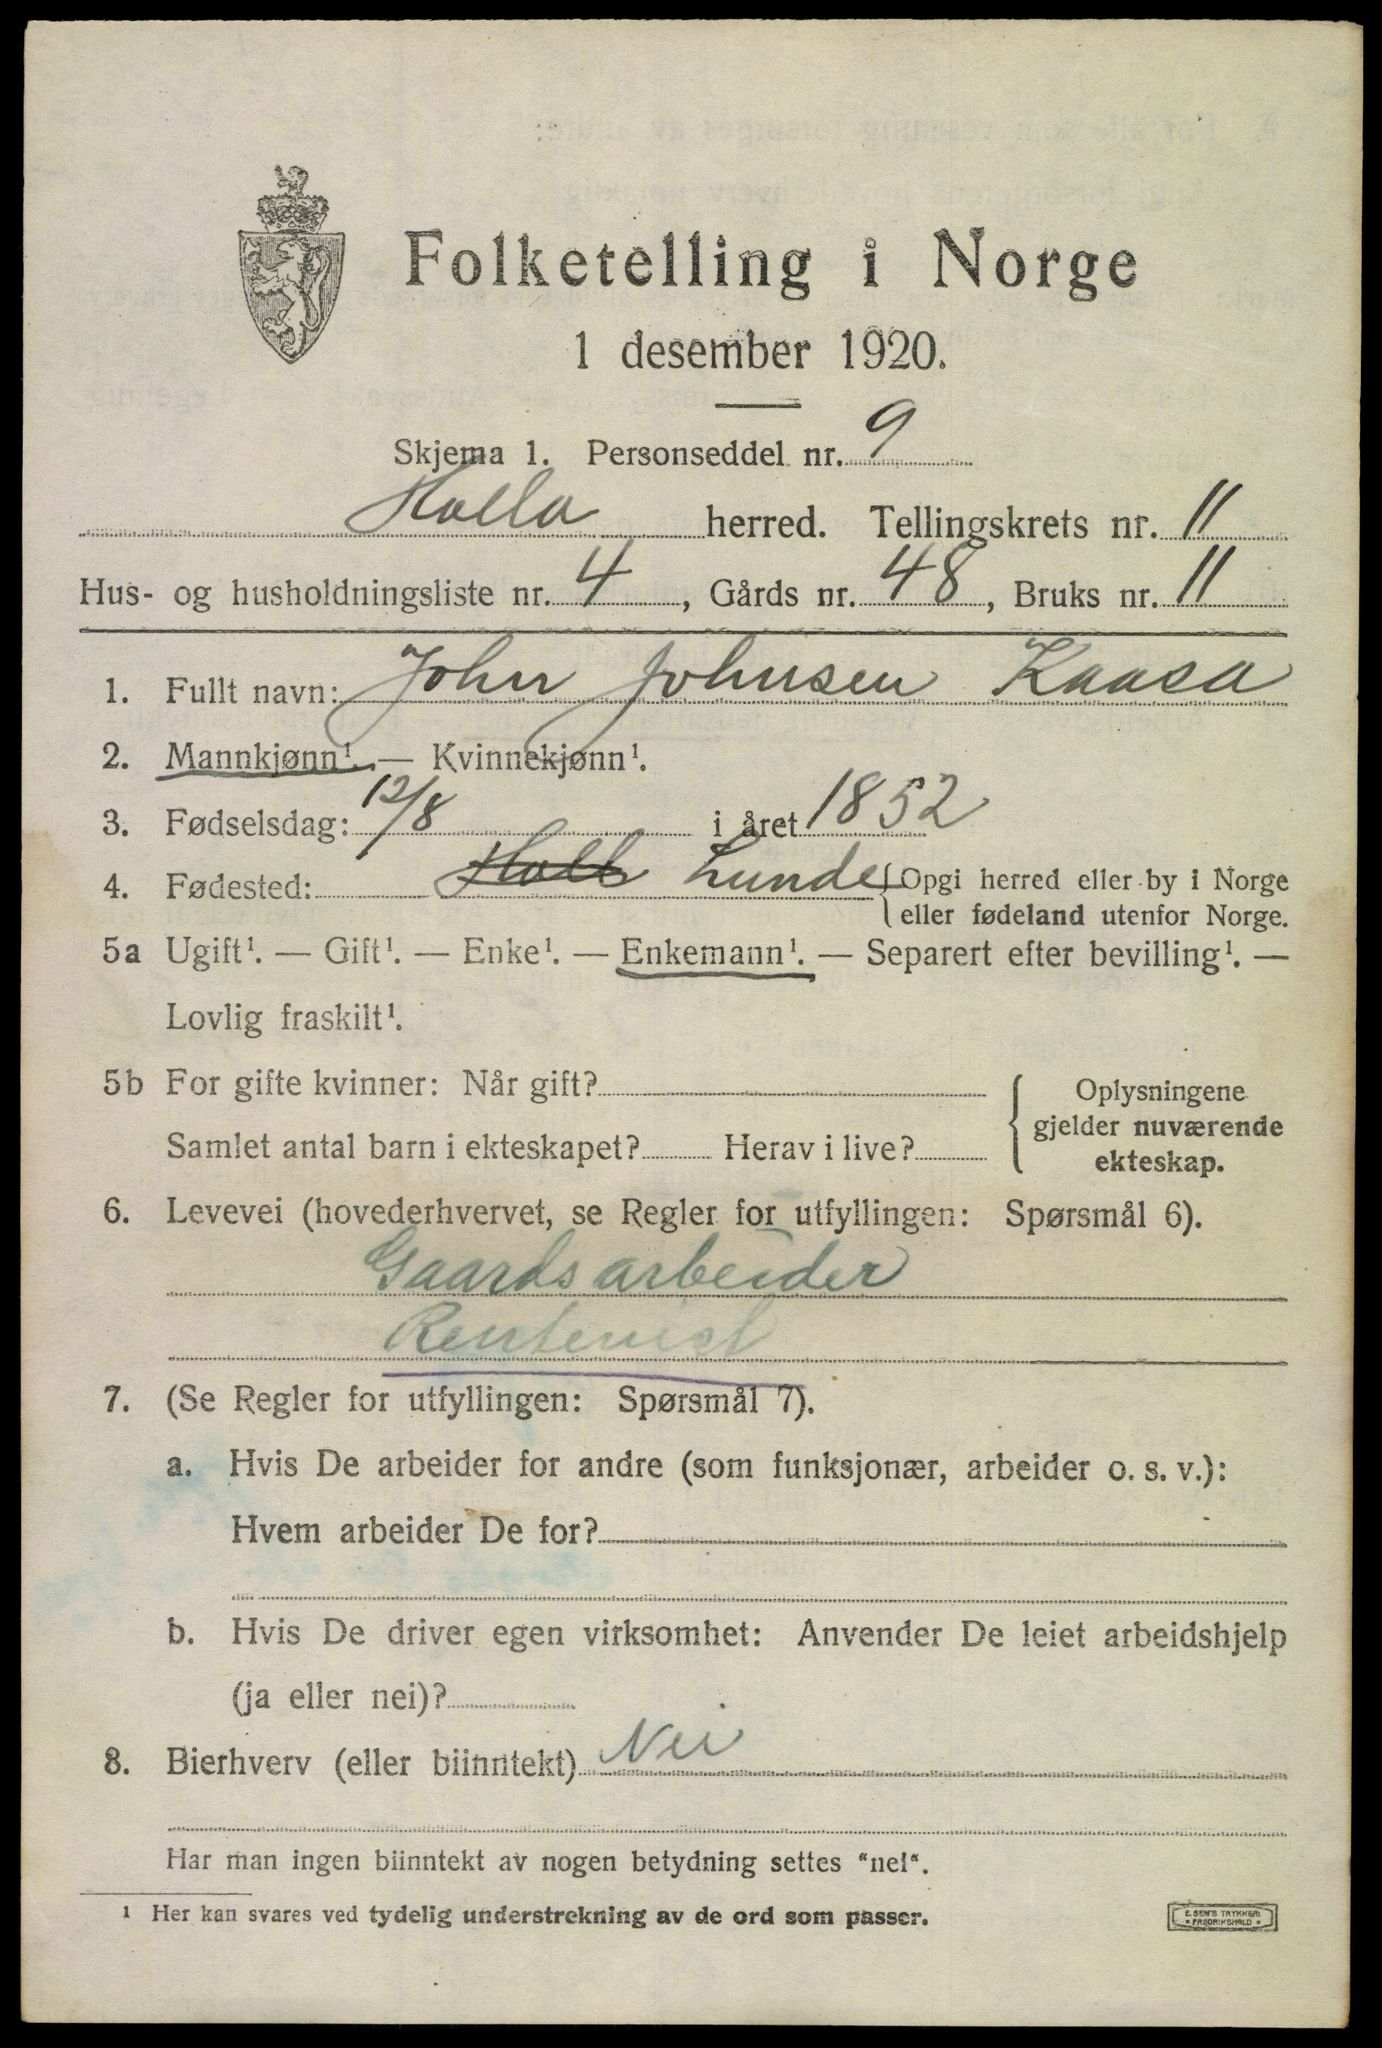 Folketelling i Norge
1 desember 1920.
Skjema 1. Personseddel nr. 9
Holla herred. Tellingskrets nr. 11
Hus- og husholdningsliste nr. 4, Gårds nr. 48, Bruks nr. 11
1. Fullt navn: John Johnsen Kaasa
2. Mannkjønn¹. — Kvinnekjønn¹.
3. Fødselsdag: 12/8 i året 1852
4. Fødested: Holla Lunde {Opgi herred eller by i Norge
eller fødeland utenfor Norge.
5a Ugift¹. — Gift¹. — Enke¹. — Enkemann¹. — Separert efter bevilling¹. —
Lovlig fraskilt¹.
5b For gifte kvinner: Når gift?
Samlet antal barn i ekteskapet? Herav i live?
Oplysningene
gjelder nuværende
ekteskap.
6. Levevei (hovederhvervet, se Regler for utfyllingen: Spørsmål 6).
Gaardsarbeider
Rentenist
7. (Se Regler for utfyllingen: Spørsmål 7).
a. Hvis De arbeider for andre (som funksjonær, arbeider o. s. v.):
Hvem arbeider De for?
b. Hvis De driver egen virksomhet: Anvender De leiet arbeidshjelp
(ja eller nei)?
8. Bierhverv (eller biinntekt) Nei
Har man ingen biinntekt av nogen betydning settes "nei".
¹ Her kan svares ved tydelig understrekning av de ord som passer.
E. SEM'S TRYKKERI
* FREDRIKSHALD *